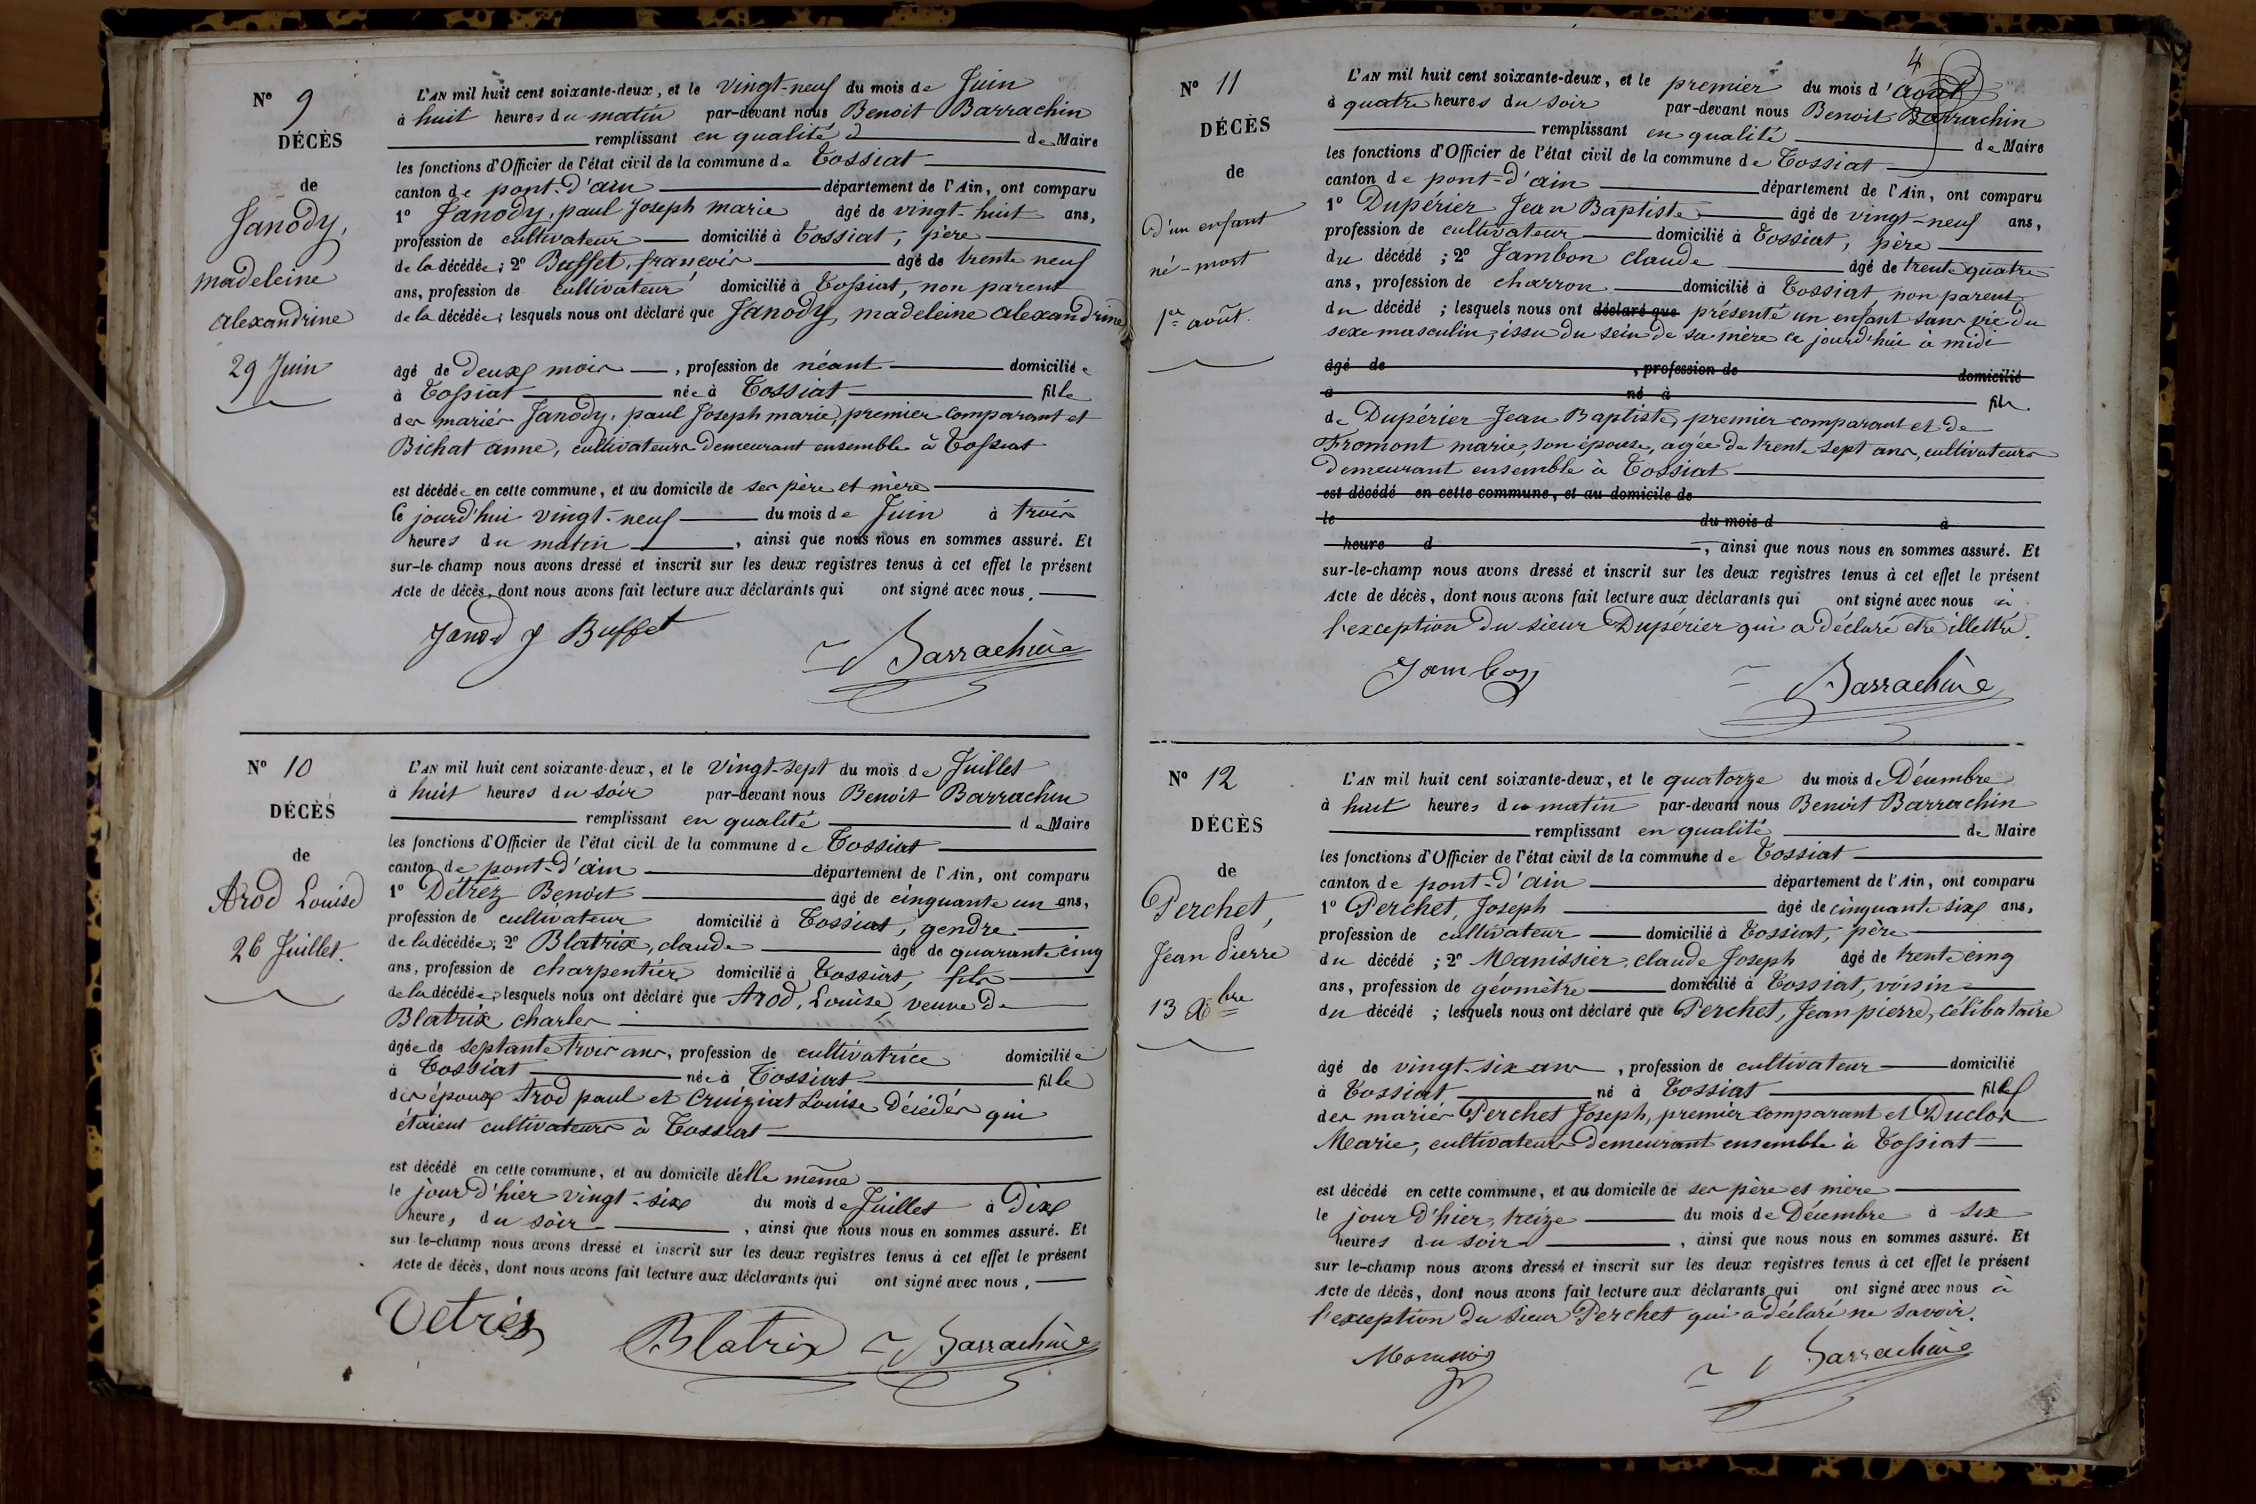 N° 9
DÉCÈS
de
Janody,
madeleine
alexandrine
29 Juin
L'AN mil huit cent soixante-deux, et le vingt-neuf du mois de Juin
à huit heures du matin par-devant nous Benoit Barrachin
remplissant en qualité d de Maire
les fonctions d'Officier de l'état civil de la commune de Tossiat
canton de pont-d'ain département de l'Ain, ont comparu
1° Janody, paul Joseph marie âgé de vingt-huit ans,
profession de cultivateur domicilié à Tossiat, père
de la décédée; 2° Buffet, françois âgé de trente neuf
ans, profession de cultivateur domicilié à Tossiat, non parent
de la décédée; lesquels nous ont déclaré que Janody, madeleine alexandrine
âgé de deux mois, profession de néant domiciliée
à Tossiat née à Tossiat fille
des mariés Janody, paul Joseph marie, premier comparant et
Bichat anne, cultivateurs demeurant ensemble à Tossiat
est décédée en cette commune, et au domicile de ses père et mère
ce jourd'hui vingt-neuf du mois de Juin à trois
heures du matin, ainsi que nous nous en sommes assuré. Et
sur-le-champ nous avons dressé et inscrit sur les deux registres tenus à cet effet le présent
Acte de décès, dont nous avons fait lecture aux déclarants qui ont signé avec nous.
Janody Buffet
Barrachin
N° 10
DÉCÈS
de
Arod Louise
26 Juillet.
L'AN mil huit cent soixante-deux, et le vingt-sept du mois de Juillet
à huit heures du soir par-devant nous Benoit Barrachin
remplissant en qualité de Maire
les fonctions d'Officier de l'état civil de la commune de Tossiat
canton de pont-d'ain département de l'Ain, ont comparu
1° Détrez Benoit âgé de cinquante un ans,
profession de cultivateur domicilié à Tossiat, gendre
de la décédée; 2° Blatrix, claude âgé de quarante cinq
ans, profession de charpentier domicilié à Tossiat, fils
de la décédée; lesquels nous ont déclaré que Arod, Louise, veuve de
Blatrix charles
âgée de septante trois ans, profession de cultivatrice domiciliée
à Tossiat née à Tossiat fille
des époux Arod paul et Cruiziat Louise décédés qui
étaient cultivateurs à Tossiat
est décédé en cette commune, et au domicile d'elle même
le jour d'hier vingt-six du mois de Juillet à dix
heures du soir, ainsi que nous nous en sommes assuré. Et
sur-le-champ nous avons dressé et inscrit sur les deux registres tenus à cet effet le présent
Acte de décès, dont nous avons fait lecture aux déclarants qui ont signé avec nous.
Detrés
Blatrix Barrachin
4
N° 11
DÉCÈS
de
D'un enfant
né-mort
1er août.
L'AN mil huit cent soixante-deux, et le premier du mois d'août
à quatre heures du soir par-devant nous Benoit Barrachin
remplissant en qualité de Maire
les fonctions d'Officier de l'état civil de la commune de Tossiat
canton de pont-d'ain département de l'Ain, ont comparu
1° Dupérier Jean Baptiste âgé de vingt-neuf ans,
profession de cultivateur domicilié à Tossiat, père
du décédé; 2° Jambon claude âgé de trente quatre
ans, profession de charron domicilié à Tossiat, non parent
du décédé; lesquels nous ont déclaré que présenté un enfant sans vie du
sexe masculin, issu du sein de sa mère ce jourd'hui à midi
âgé de, profession de domicilié
à né à fils
de Dupérier Jean Baptiste, premier comparant et de
Fromont marie, son épouse, agée de trente sept ans, cultivateurs
demeurant ensemble à Tossiat
est décédé en cette commune, et au domicile de
le du mois d à
heure d, ainsi que nous nous en sommes assuré. Et
sur-le-champ nous avons dressé et inscrit sur les deux registres tenus à cet effet le présent
Acte de décès, dont nous avons fait lecture aux déclarants qui ont signé avec nous à
l'exception du sieur Dupérier qui a déclaré etre illettré.
Jambon
Barrachin
N° 12
DÉCÈS
de
Perchet,
Jean Pierre
13 Xbre
L'AN mil huit cent soixante-deux, et le quatorze du mois de Décembre
à huit heures du matin par-devant nous Benoit Barrachin
remplissant en qualité de Maire
les fonctions d'Officier de l'état civil de la commune de Tossiat
canton de pont-d'ain département de l'Ain, ont comparu
1° Perchet, Joseph âgé de cinquante six ans,
profession de cultivateur domicilié à Tossiat, père
du décédé; 2° Manissier, claude Joseph âgé de trente cinq
ans, profession de géomètre domicilié à Tossiat, voisin
du décédé; lesquels nous ont déclaré que Perchet, Jean pierre, célibataire
âgé de vingt-six ans, profession de cultivateur domicilié
à Tossiat né à Tossiat fils
des mariés Perchet Joseph, premier comparant et Duclos
Marie, cultivateurs demeurant ensemble à Tossiat
est décédé en cette commune, et au domicile de ses père et mère
le jour d'hier, treize du mois de Décembre à six
heures du soir, ainsi que nous nous en sommes assuré. Et
sur le-champ nous avons dressé et inscrit sur les deux registres tenus à cet effet le présent
Acte de décès, dont nous avons fait lecture aux déclarants qui ont signé avec nous à
l'exception du sieur Perchet qui a déclaré ne savoir.
Barrachin